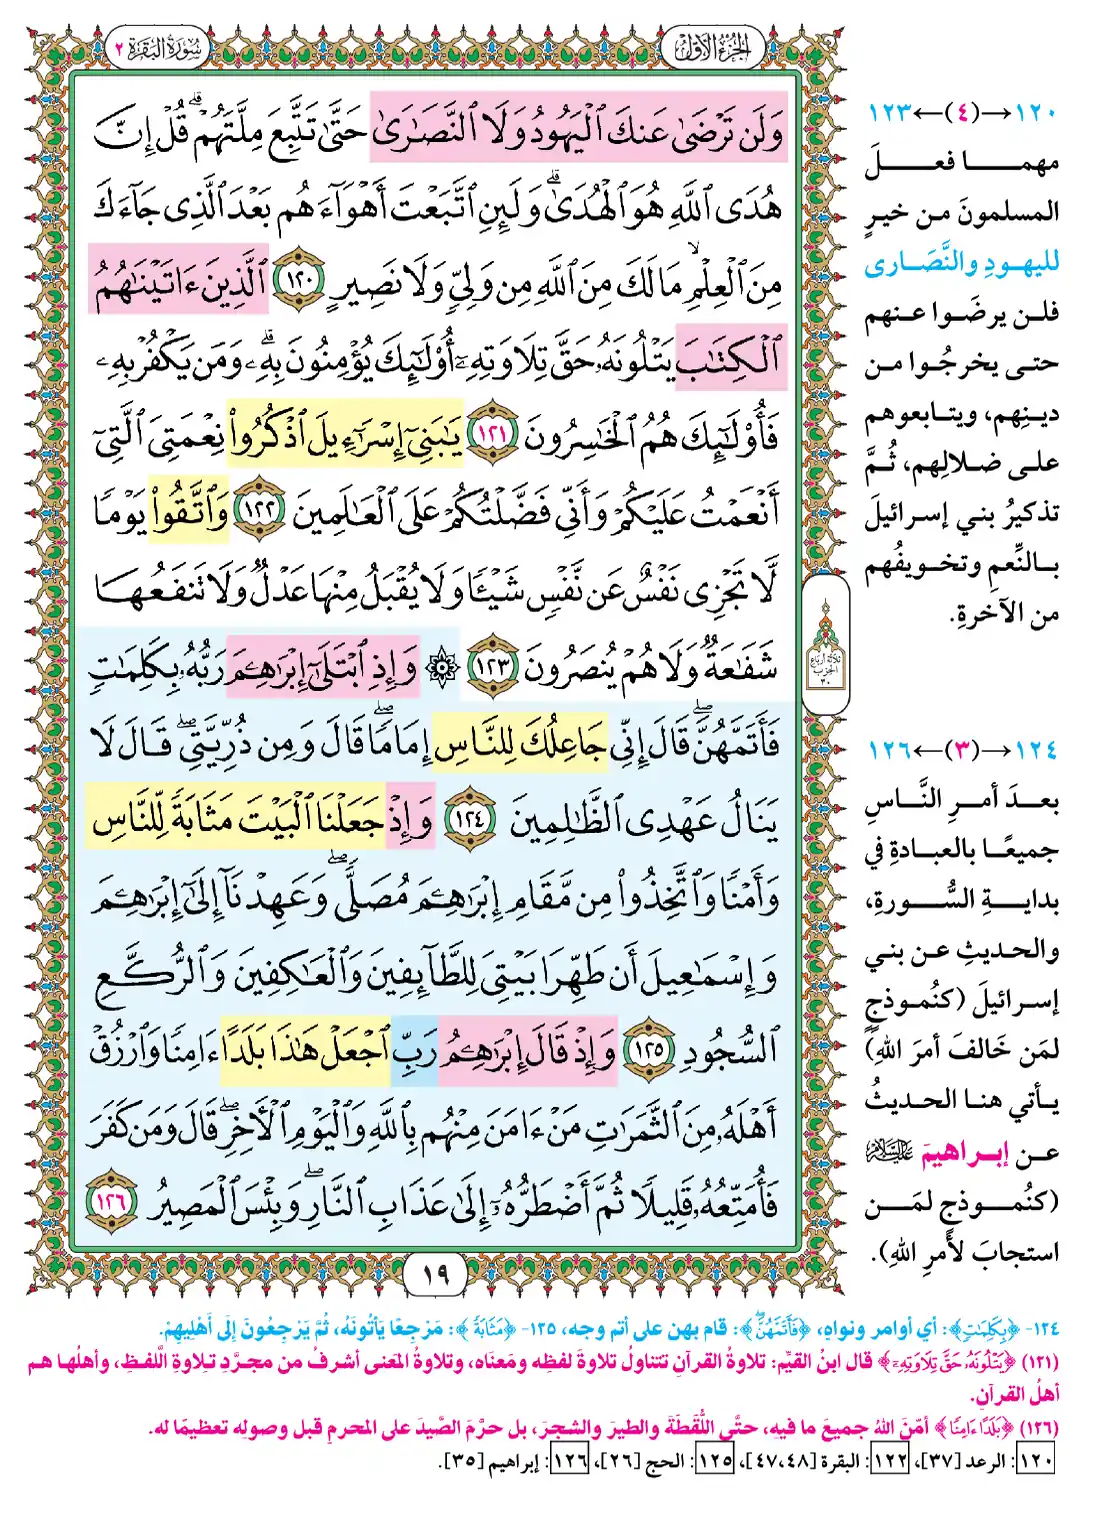 الجزء الأول
سورة البقرة ٢
وَلَن تَرْضَىٰ عَنكَ ٱلْيَهُودُ وَلَا ٱلنَّصَـٰرَىٰ حَتَّىٰ تَتَّبِعَ مِلَّتَهُمْ ۗ قُلْ إِنَّ
هُدَى ٱللَّهِ هُوَ ٱلْهُدَىٰ ۗ وَلَئِنِ ٱتَّبَعْتَ أَهْوَآءَهُم بَعْدَ ٱلَّذِى جَآءَكَ
مِنَ ٱلْعِلْمِ ۙ مَا لَكَ مِنَ ٱللَّهِ مِن وَلِىٍّ وَلَا نَصِيرٍ ١٢٠ ٱلَّذِينَ ءَاتَيْنَـٰهُمُ
ٱلْكِتَـٰبَ يَتْلُونَهُۥ حَقَّ تِلَاوَتِهِۦٓ أُو۟لَـٰٓئِكَ يُؤْمِنُونَ بِهِۦ ۗ وَمَن يَكْفُرْ بِهِۦ
فَأُو۟لَـٰٓئِكَ هُمُ ٱلْخَـٰسِرُونَ ١٢١ يَـٰبَنِىٓ إِسْرَٰٓءِيلَ ٱذْكُرُوا۟ نِعْمَتِىَ ٱلَّتِىٓ
أَنْعَمْتُ عَلَيْكُمْ وَأَنِّى فَضَّلْتُكُمْ عَلَى ٱلْعَـٰلَمِينَ ١٢٢ وَٱتَّقُوا۟ يَوْمًا
لَّا تَجْزِى نَفْسٌ عَن نَّفْسٍ شَيْـًٔا وَلَا يُقْبَلُ مِنْهَا عَدْلٌ وَلَا تَنفَعُهَا
شَفَـٰعَةٌ وَلَا هُمْ يُنصَرُونَ ١٢٣ ۞ وَإِذِ ٱبْتَلَىٰٓ إِبْرَٰهِـۧمَ رَبُّهُۥ بِكَلِمَـٰتٍ
فَأَتَمَّهُنَّ ۖ قَالَ إِنِّى جَاعِلُكَ لِلنَّاسِ إِمَامًا ۖ قَالَ وَمِن ذُرِّيَّتِى ۖ قَالَ لَا
يَنَالُ عَهْدِى ٱلظَّـٰلِمِينَ ١٢٤ وَإِذْ جَعَلْنَا ٱلْبَيْتَ مَثَابَةً لِّلنَّاسِ
وَأَمْنًا وَٱتَّخِذُوا۟ مِن مَّقَامِ إِبْرَٰهِـۧمَ مُصَلًّى ۖ وَعَهِدْنَآ إِلَىٰٓ إِبْرَٰهِـۧمَ
وَإِسْمَـٰعِيلَ أَن طَهِّرَا بَيْتِىَ لِلطَّآئِفِينَ وَٱلْعَـٰكِفِينَ وَٱلرُّكَّعِ
ٱلسُّجُودِ ١٢٥ وَإِذْ قَالَ إِبْرَٰهِـۧمُ رَبِّ ٱجْعَلْ هَـٰذَا بَلَدًا ءَامِنًا وَٱرْزُقْ
أَهْلَهُۥ مِنَ ٱلثَّمَرَٰتِ مَنْ ءَامَنَ مِنْهُم بِٱللَّهِ وَٱلْيَوْمِ ٱلْـَٔاخِرِ ۖ قَالَ وَمَن كَفَرَ
فَأُمَتِّعُهُۥ قَلِيلًا ثُمَّ أَضْطَرُّهُۥٓ إِلَىٰ عَذَابِ ٱلنَّارِ ۖ وَبِئْسَ ٱلْمَصِيرُ ١٢٦
١٩
ثلاثة أرباع
الحزب
١٢٠→(٤)←١٢٣
مهمــــا فعــــلَ
المسلمونَ من خيرٍ
لليهودِ والنَّصَارى
فلن يرضَوا عنهم
حتى يخرجُوا من
دينِهم، ويتابعوهم
على ضلالِهم، ثُمَّ
تذكيرُ بني إسرائيلَ
بالنِّعمِ وتخويفُهم
من الآخرةِ.
١٢٤→(٣)←١٢٦
بعدَ أمرِ النَّاسِ
جميعًا بالعبادةِ في
بدايةِ السُّورةِ،
والحديثِ عن بني
إسرائيلَ (كنُموذجٍ
لمَن خَالفَ أمرَ اللهِ)
يأتي هنا الحديثُ
عن إبراهيمَ عليه السلام
(كنُموذجٍ لمَن
استجابَ لأمرِ اللهِ).
١٢٤- ﴿بِكَلِمَـٰتٍ﴾: أي أوامر ونواهٍ، ﴿فَأَتَمَّهُنَّ ۖ﴾: قام بهن على أتم وجه، ١٢٥- ﴿مَثَابَةً﴾: مَرْجِعًا يَأتُونَهُ، ثُمَّ يَرْجِعُونَ إِلَى أَهْلِيهِمْ.
(١٢١) ﴿يَتْلُونَهُۥ حَقَّ تِلَاوَتِهِۦٓ﴾ قال ابنُ القيِّم: تلاوةُ القرآنِ تتناولُ تلاوةَ لفظِه ومَعناه، وتلاوةُ المَعنى أشرفُ من مجرَّدِ تلاوةِ اللَّفظِ، وأهلُها هم
أهلُ القرآنِ.
(١٢٦) ﴿بَلَدًا ءَامِنًا﴾ أمّنَ اللهُ جميعَ ما فيهِ، حتَّى اللُّقَطَةَ والطيرَ والشجرَ، بل حرَّمَ الصَّيدَ على المحرمِ قبل وصولِه تعظيمًا له.
١٢٠: الرعد [٣٧]، ١٢٢: البقرة [٤٧،٤٨]، ١٢٥: الحج [٢٦]، ١٢٦: إبراهيم [٣٥].